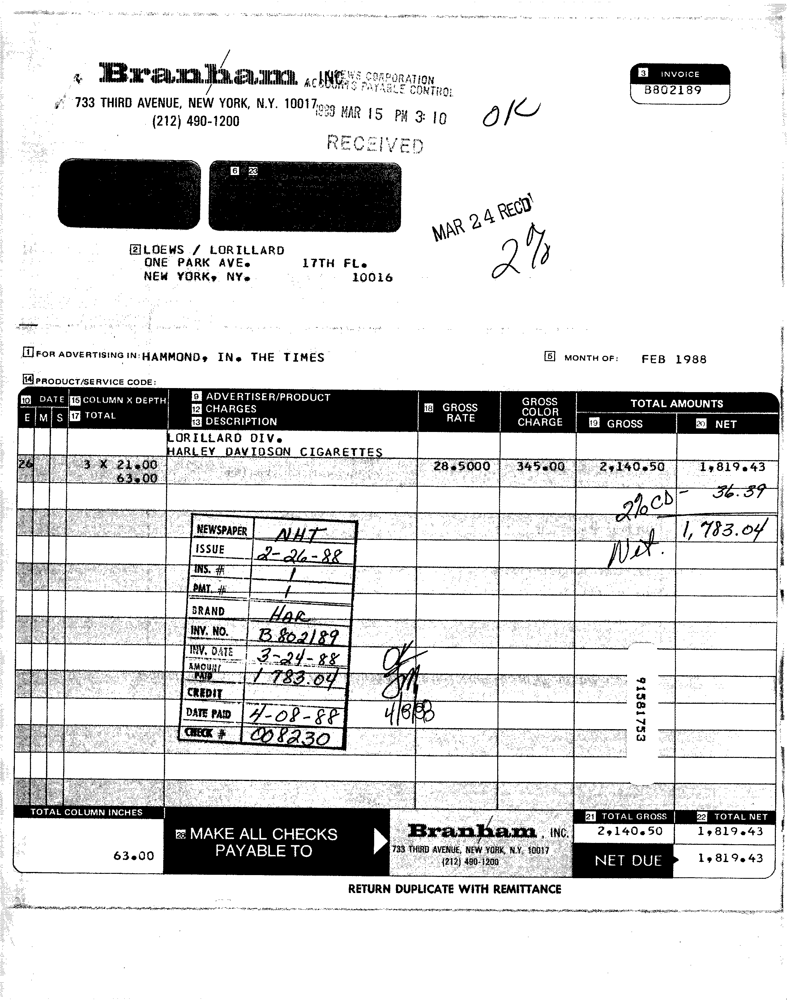 Branham INC.
NEWS CORPORATION
ACCOUNTS PAYABLE CONTROL
733 THIRD AVENUE, NEW YORK, N.Y. 10017
(212) 490-1200
MAR 15 PM 3:10
RECEIVED
OK
3 INVOICE
B802189
6 23
MAR 24 RECD
2%
2 LOEWS / LORILLARD
ONE PARK AVE. 17TH FL.
NEW YORK, NY. 10016
1 FOR ADVERTISING IN: HAMMOND, IN. THE TIMES
5 MONTH OF: FEB 1988
14 PRODUCT/SERVICE CODE:
10 DATE 15 COLUMN X DEPTH
E M S 17 TOTAL
9 ADVERTISER/PRODUCT
12 CHARGES
13 DESCRIPTION
18 GROSS RATE
GROSS COLOR CHARGE
TOTAL AMOUNTS
19 GROSS 20 NET
LORILLARD DIV.
HARLEY DAVIDSON CIGARETTES
26 3 X 21.00 28.5000 345.00 2,140.50 1,819.43
63.00
2% CD - 36.39
Net. 1,783.04
NEWSPAPER NHT
ISSUE 2-26-88
INS. # 1
PMT. # 1
BRAND HAR
INV. NO. B 802189
INV. DATE 3-24-88
AMOUNT PAID 1 783.04
CREDIT
DATE PAID 4-08-88
CHECK # 008230
OK
4/8/88
91581753
TOTAL COLUMN INCHES
63.00
MAKE ALL CHECKS
PAYABLE TO
Branham, INC.
733 THIRD AVENUE, NEW YORK, N.Y. 10017
(212) 490-1200
21 TOTAL GROSS 22 TOTAL NET
2,140.50 1,819.43
NET DUE 1,819.43
RETURN DUPLICATE WITH REMITTANCE